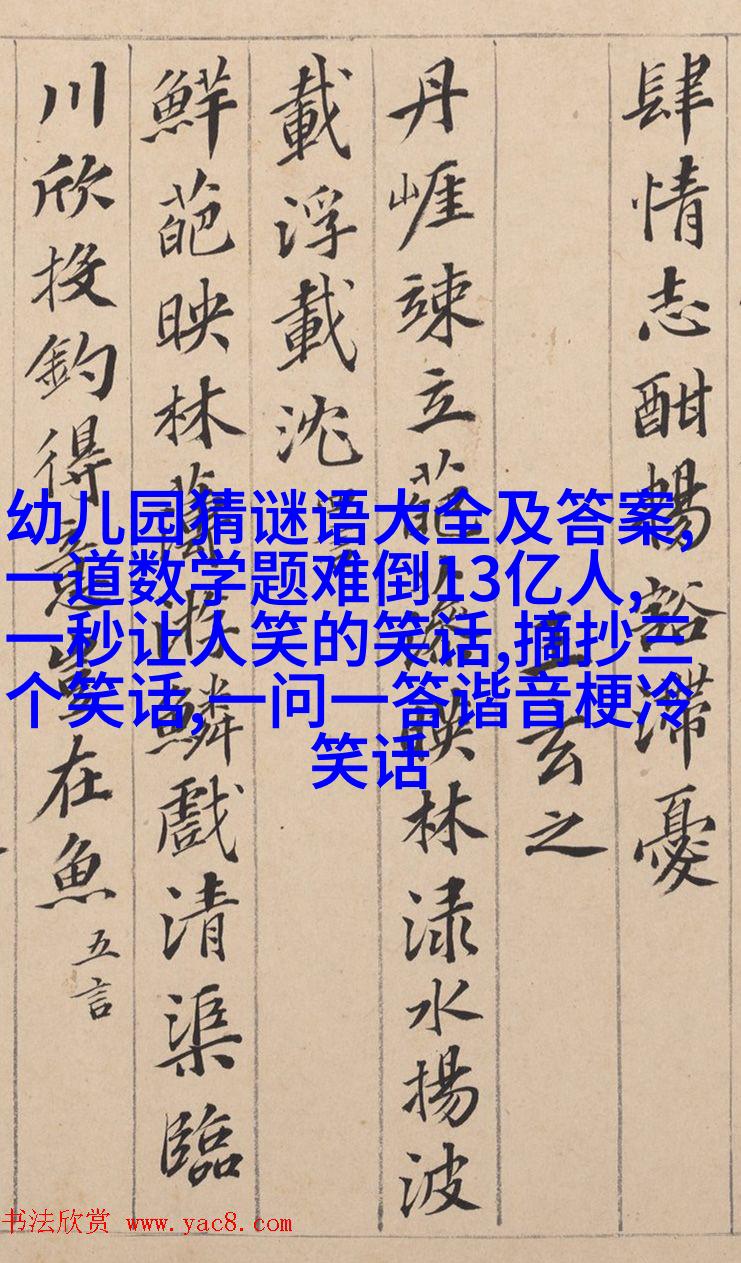 肆情志酣暢豁滯憂
王玄之
丹崕竦立葩藻映林渌水揚波
載浮載沈
鮮葩映林薄游鱗戲清渠臨
川欣投釣得意豈在魚 五言
幼儿园猜谜语大全及答案,
一道数学题难倒13亿人,
一秒让人笑的笑话,摘抄三
个笑话,一问一答谐音梗冷
笑话
书法欣赏 www.yac8.com